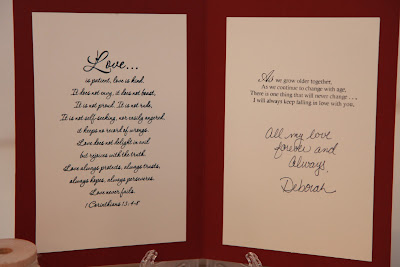 Love...
is patient, love is kind.
It does not envy, it does not boast,
It is not proud. It is not rude,
It is not self-seeking, nor easily angered,
it keeps no record of wrongs.
Love does not delight in evil
but rejoices with the truth.
Love always protects, always trusts,
always hopes, always perseveres.
Love never fails.
1 Corinthians 13:4-8
As we grow older together,
As we continue to change with age,
There is one thing that will never change . . .
I will always keep falling in love with you.
All my love
forever and
always,
Deborah